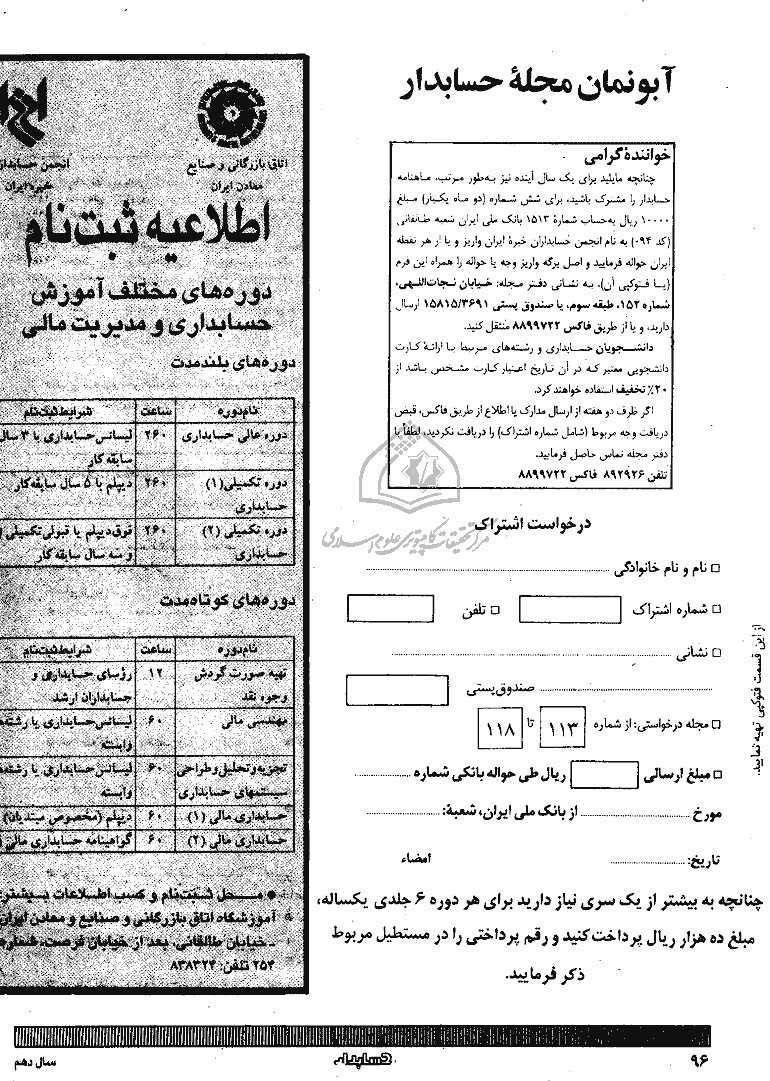 آبونمان مجلهٔ حسابدار
خوانندهٔ گرامی
چنانچه مایلید برای یک سال آینده نیز به‌طور مرتب، ماهنامه
حسابدار را مشترک باشید، برای شش شماره (دو ماه یکبار) مبلغ
۱۰۰۰۰ ریال به‌حساب شمارهٔ ۱۵۱۳ بانک ملی ایران شعبه طالقانی
(کد ۰۹۴) به نام انجمن حسابداران خبرهٔ ایران واریز و یا از هر نقطه
ایران حواله فرمایید و اصل برگه واریز وجه یا حواله را همراه این فرم
(یا فتوکپی آن)، به نشانی دفتر مجله: خیابان نجات‌اللهی،
شماره ۱۵۲، طبقه سوم، یا صندوق پستی ۱۵۸۱۵/۳۶۹۱ ارسال
دارید، و یا از طریق فاکس ۸۸۹۹۷۲۲ منتقل کنید.
دانشجویان حسابداری و رشته‌های مرتبط با ارائهٔ کارت
دانشجویی معتبر که در آن تاریخ اعتبار کارت مشخص باشد از
۲۰٪ تخفیف استفاده خواهند کرد.
اگر ظرف دو هفته از ارسال مدارک یا اطلاع از طریق فاکس، قبض
دریافت وجه مربوط (شامل شماره اشتراک) را دریافت نکردید، لطفاً با
دفتر مجله تماس حاصل فرمایید.
تلفن ۸۹۲۹۲۶ فاکس ۸۸۹۹۷۲۲
درخواست اشتراک
مرکز تحقیقات کامپیوتری علوم اسلامی
□ نام و نام خانوادگی
□ شماره اشتراک □ تلفن
□ نشانی
صندوق‌پستی
□ مجله درخواستی: از شماره ۱۱۳ تا ۱۱۸
□ مبلغ ارسالی ریال طی حواله بانکی شماره
مورخ از بانک ملی ایران، شعبهٔ:
تاریخ: امضاء
چنانچه به بیشتر از یک سری نیاز دارید برای هر دوره ۶ جلدی یکساله،
مبلغ ده هزار ریال پرداخت کنید و رقم پرداختی را در مستطیل مربوط
ذکر فرمایید.
از این قسمت فتوکپی تهیه نمایید.
اتاق بازرگانی و صنایع
معادن ایران
انجمن حسابدار
خبره ایران
اطلاعیه ثبت‌نام
دوره‌های مختلف آموزش
حسابداری و مدیریت مالی
دوره‌های بلندمدت
نام‌دوره ساعت شرایط ثبت‌نام
دوره عالی حسابداری ۲۶۰ لیسانس حسابداری با ۳ سال
سابقه کار
دوره تکمیلی(۱) ۲۶۰ دیپلم با ۵ سال سابقه‌کار
حسابداری
دوره تکمیلی (۲) ۲۶۰ فوق‌دیپلم یا قبولی تکمیلی (
حسابداری و سه سال سابقه کار
دوره‌های کوتاه‌مدت
نام‌دوره ساعت شرایط ثبت‌نام
تهیه صورت گردش ۱۲ رؤسای حسابداری و
وجوه نقد حسابداران ارشد
مهندسی مالی ۶۰ لیسانس حسابداری یا رشته‌ه
وابسته
تجزیه‌وتحلیل‌وطراحی ۶۰ لیسانس حسابداری یا رشته‌ه
سیستمهای حسابداری وابسته
حسابداری مالی (۱) ۶۰ دیپلم (مخصوص مبتدیان)
حسابداری مالی (۲) ۶۰ گواهینامه حسابداری مالی (
● محل ثبت‌نام و کسب اطلاعات بیشتر:
آموزشگاه اتاق بازرگانی و صنایع و معادن ایران
ـ خیابان طالقانی، بعد از خیابان فرصت، شماره
۲۵۴ تلفن: ۸۳۸۳۲۴
۹۶
حسابدار
سال دهم